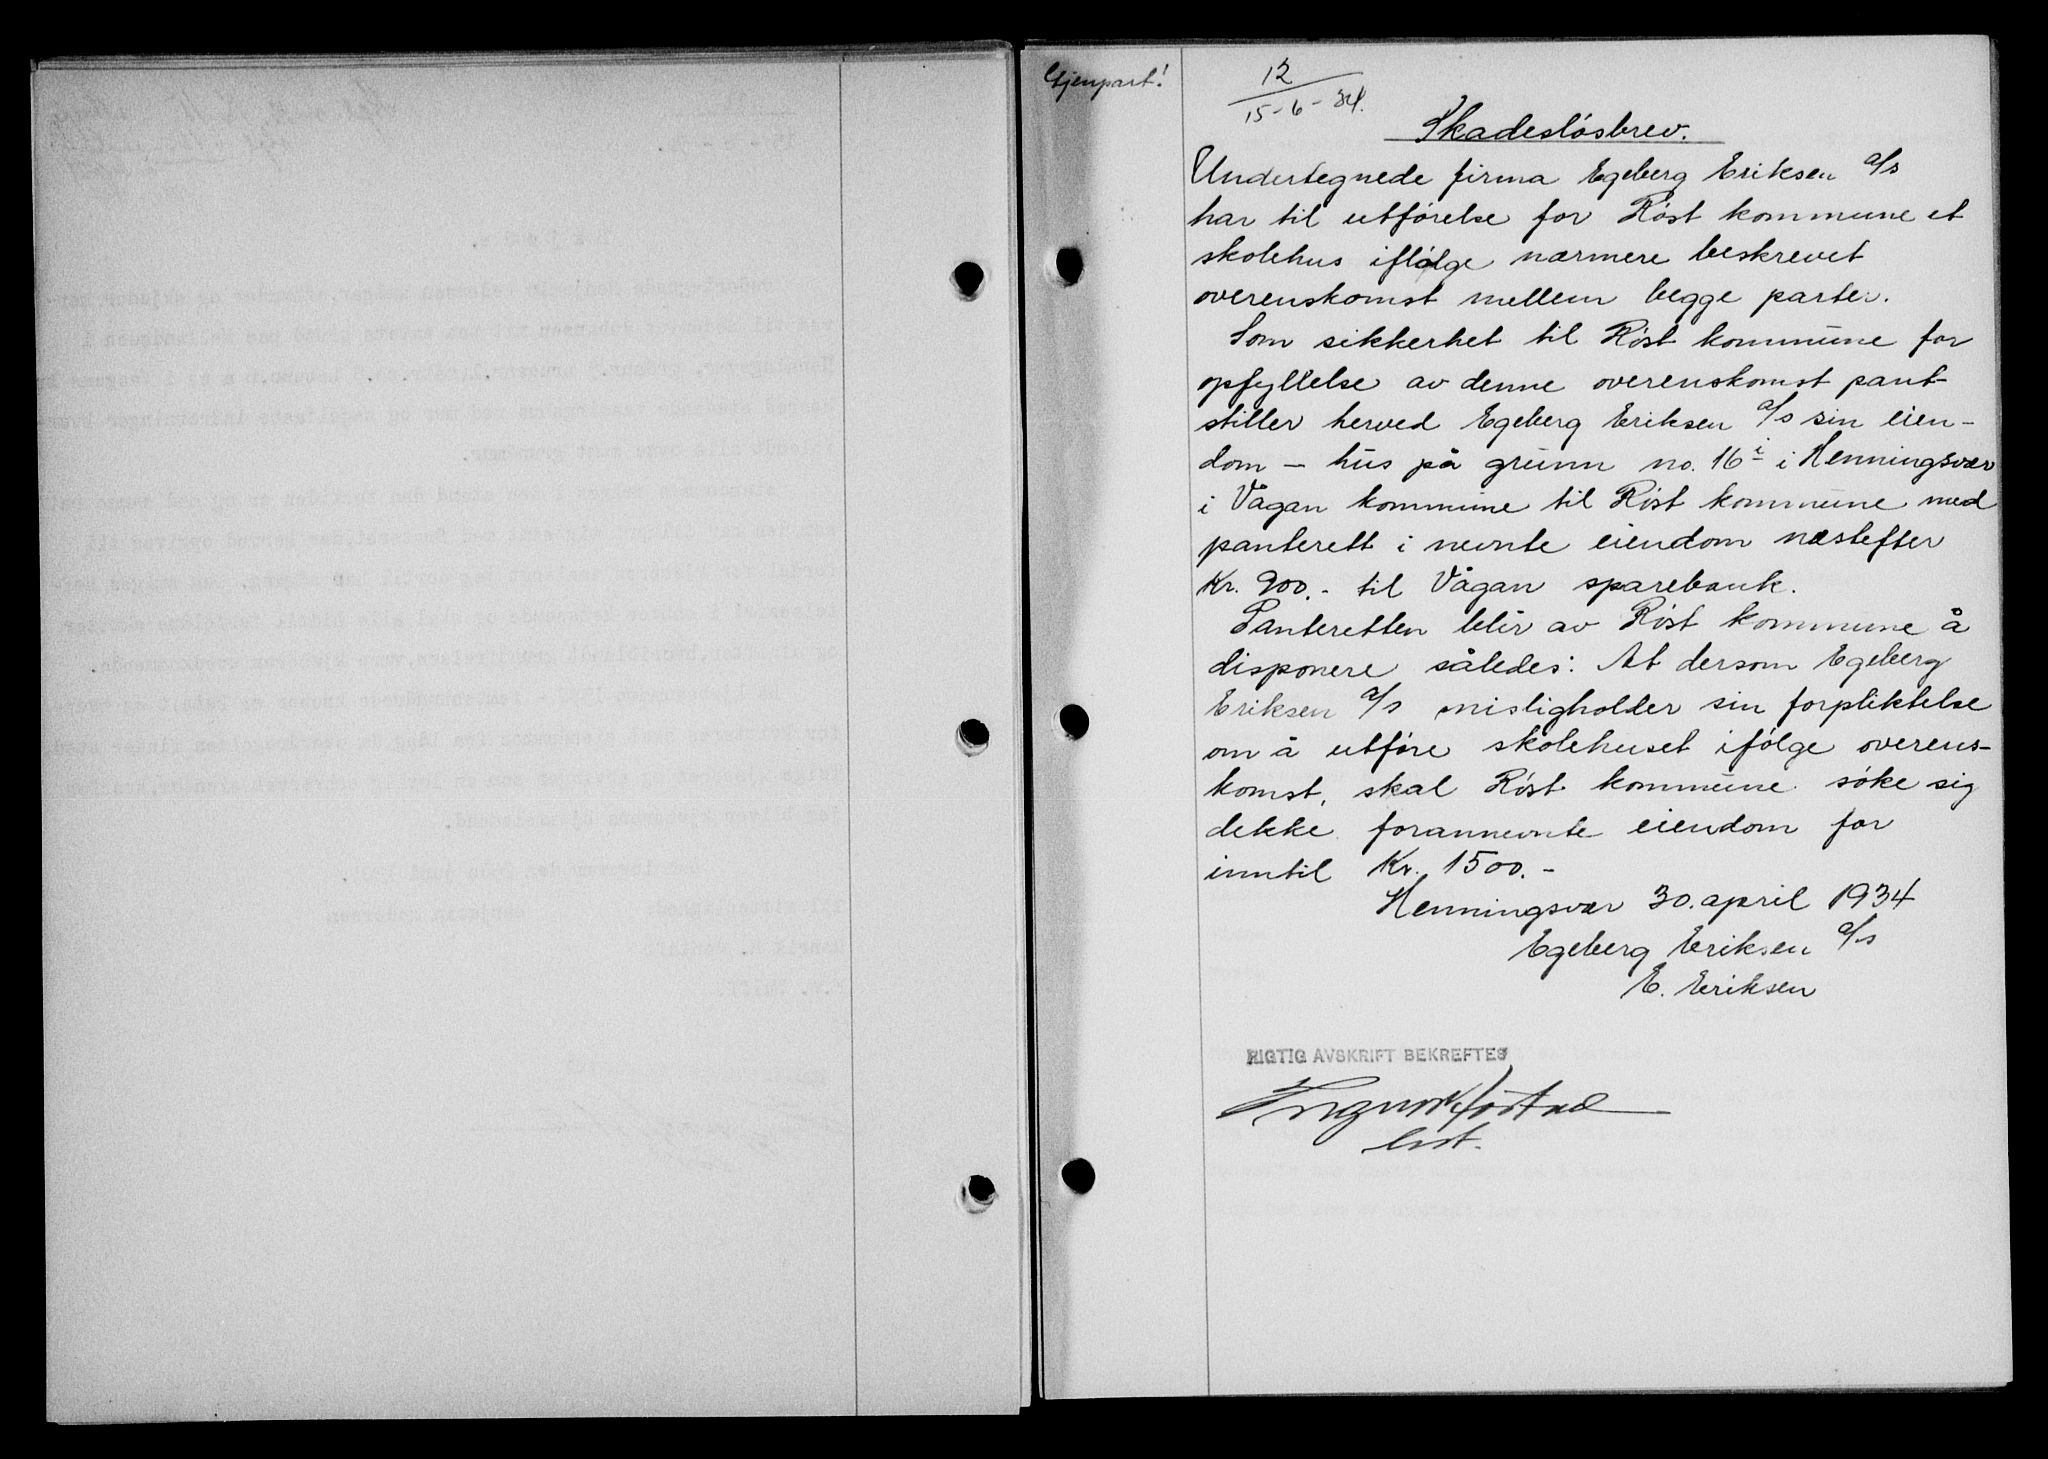 Gjenpart!
12
15-6-34.
Skadesløsbrev.
Undertegnede firma Egeberg Eriksen a/s
har til utførelse for Røst kommune et
skolehus iflølge nærmere beskrevet
overenskomst mellem begge parter.
Som sikkerhet til Røst kommune for
opfyllelse av denne overenskomst pant-
stiller herved Egeberg Eriksen a/s sin eien-
dom - hus på grunn no. 16 i i Henningsvær
i Vågan kommune til Røst kommune med
panterett i nevnte eiendom næstefter
Kr. 900.- til Vågan sparebank.
Panteretten blir av Røst kommune å
disponere således: At dersom Egeberg
Eriksen a/s misligholder sin forpliktelse
om å utføre skolehuset ifølge overens-
komst, skal Røst kommune søke sig
dekke forannevnte eiendom for
inntil Kr. 1500.-
Henningsvær 30. april 1934
Egeberg Eriksen a/s
E. Eriksen
RIGTIG AVSKRIFT BEKREFTES